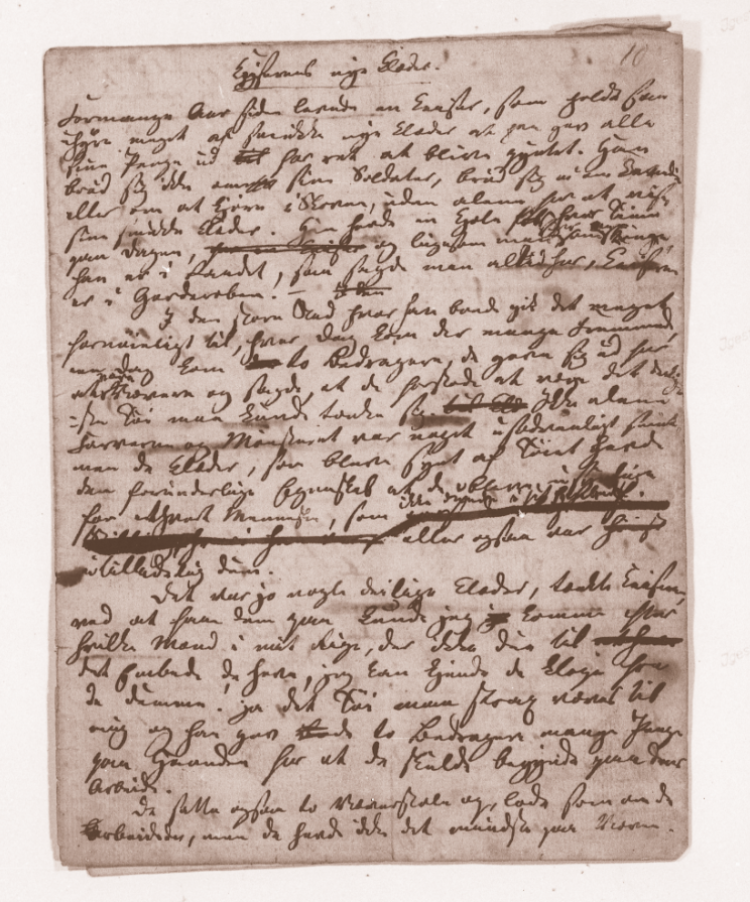 Kejserens nye Klæder.
10
For mange Aar siden levede en Keiser, som holdt saa
uhyre meget af smukke nye Klæder at han gav alle
sine Penge ud for ret at blive pyntet. Han
brød sig ikke om sine Soldater, brød sig ei om Comedie
eller om at kjøre i Skoven, uden alene for at vise
sine smukke Klæder. Han havde en Kjole for hver Time
paa Dagen, og ligesom man siger om en Konge
han er i Raadet, saa sagde man altid her, Keiseren
er i Garderoben. —
I den store Stad hvor han boede gik det meget
fornøieligt til, hver Dag kom der mange Fremmede,
een Dag kom to Bedragere, de gave sig ud for
at være Vævere og sagde, at de forstode at væve det deilig-
-ste Tøi man kunde tænke sig. Ikke alene
Farverne og Mønsteret var noget usædvanligt smukt
men de Klæder, som bleve syet af Tøiet havde
den forunderlige Egenskab at de bleve usynlige
for ethvert Menneske, som ikke duede i sit Embede.
eller ogsaa var
utilladelig dum.
Det var jo nogle deilige Klæder, tænkte Keiseren,
ved at have dem paa kunde jeg komme efter
hvilke Mænd i mit Rige, der ikke due til
det Embede de have, jeg kan kjende de kloge fra
de dumme! ja det Tøi maa strax væves til
mig og han gav de to Bedragere mange Penge
paa Haanden for at de skulde begynde paa deres
Arbeide.
De satte ogsaa to Væverstole op, lode som om de
arbeidede, men de havde ikke det mindste paa Væven.